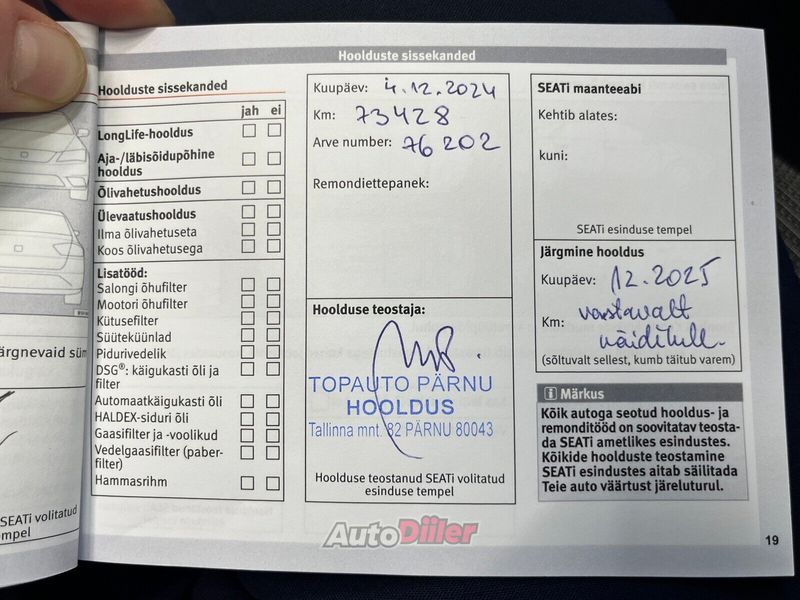 Hoolduste sissekanded
Hoolduste sissekanded
jah ei
LongLife-hooldus
Aja-/läbisõidupõhine
hooldus
Õlivahetushooldus
Ülevaatushooldus
Ilma õlivahetuseta
Koos õlivahetusega
Lisatööd:
Salongi õhufilter
Mootori õhufilter
Kütusefilter
Süüteküünlad
Pidurivedelik
DSG®: käigukasti õli ja
filter
Automaatkäigukasti õli
HALDEX-siduri õli
Gaasifilter ja -voolikud
Vedelgaasifilter (paber-
filter)
Hammasrihm
Kuupäev: 4.12.2024
Km: 73428
Arve number: 76202
Remondiettepanek:
Hoolduse teostaja:
TOPAUTO PÄRNU
HOOLDUS
Tallinna mnt. 82 PÄRNU 80043
Hoolduse teostanud SEATi volitatud
esinduse tempel
SEATi maanteeabi
Kehtib alates:
kuni:
SEATi esinduse tempel
Järgmine hooldus
Kuupäev: 12.2025
Km: vastavalt
näidikule.
(sõltuvalt sellest, kumb täitub varem)
i Märkus
Kõik autoga seotud hooldus- ja
remonditööd on soovitatav teosta-
da SEATi ametlikes esindustes.
Kõikide hoolduste teostamine
SEATi esindustes aitab säilitada
Teie auto väärtust järeluturul.
19
SEATi volitatud
AutoDiiler